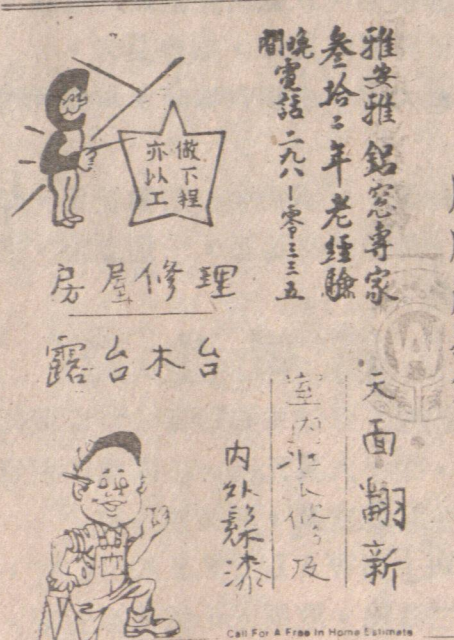 雅安雅鋁窓專家
叁拾二年老經驗
晚間電話二九八—零三三五
做下程
亦以工
房屋修理
露台木台
天面翻新
室内裝修及
内外髹漆
Call For A Free In Home Estimate